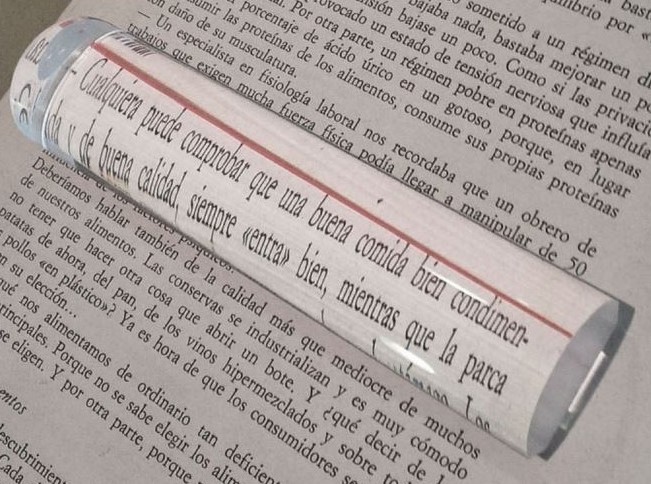 sometido a un régimen
bajaba nada, bastaba mejorar un
sión bajase un poco. Como si las privaci
rovocado un estado de tensión nerviosa que influía
. Por otra parte, un régimen pobre en proteínas apenas
porcentaje de ácido úrico en un gotoso, porque, en lugar
sumir las proteínas de los alimentos, consume sus propias proteínas
on daño de su musculatura.
— Un especialista en fisiología laboral nos recordaba que un obrero de
trabajos que exigen mucha fuerza física podía llegar a manipular de 50
— Cualquiera puede comprobar que una buena comida bien condimen-
da y de buena calidad, siempre «entra» bien, mientras que la parca
Los
Deberíamos hablar también de la calidad más que mediocre de muchos
de nuestros alimentos. Las conservas se industrializan y es muy cómodo
no tener que hacer otra cosa que abrir un bote. Y ¿qué decir de
patatas de ahora, del pan, de los vinos hipermezclados y sobre to
pollos «en plástico»? Ya es hora de que los consumidores se
n su elección...
qué nos alimentamos de ordinario tan deficien
rincipales. Porque no se sabe elegir los alim
se eligen. Y por otra parte, porque
entos
escubrimien
Cada